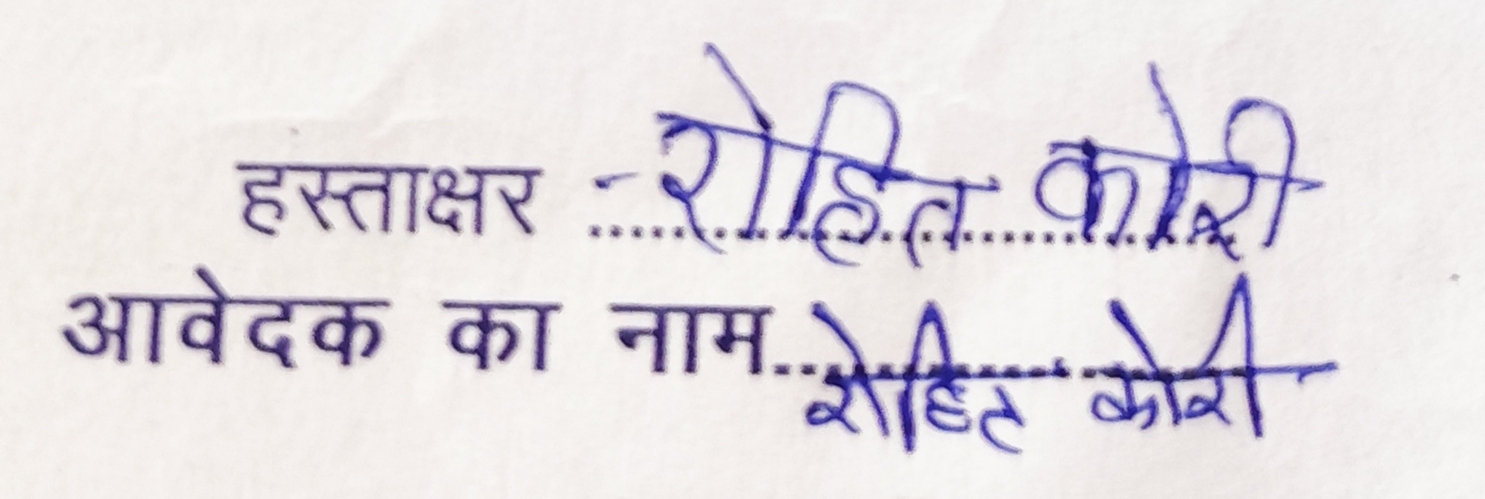 हस्ताक्षर - रोहित कोरी
आवेदक का नाम रोहित कोरी